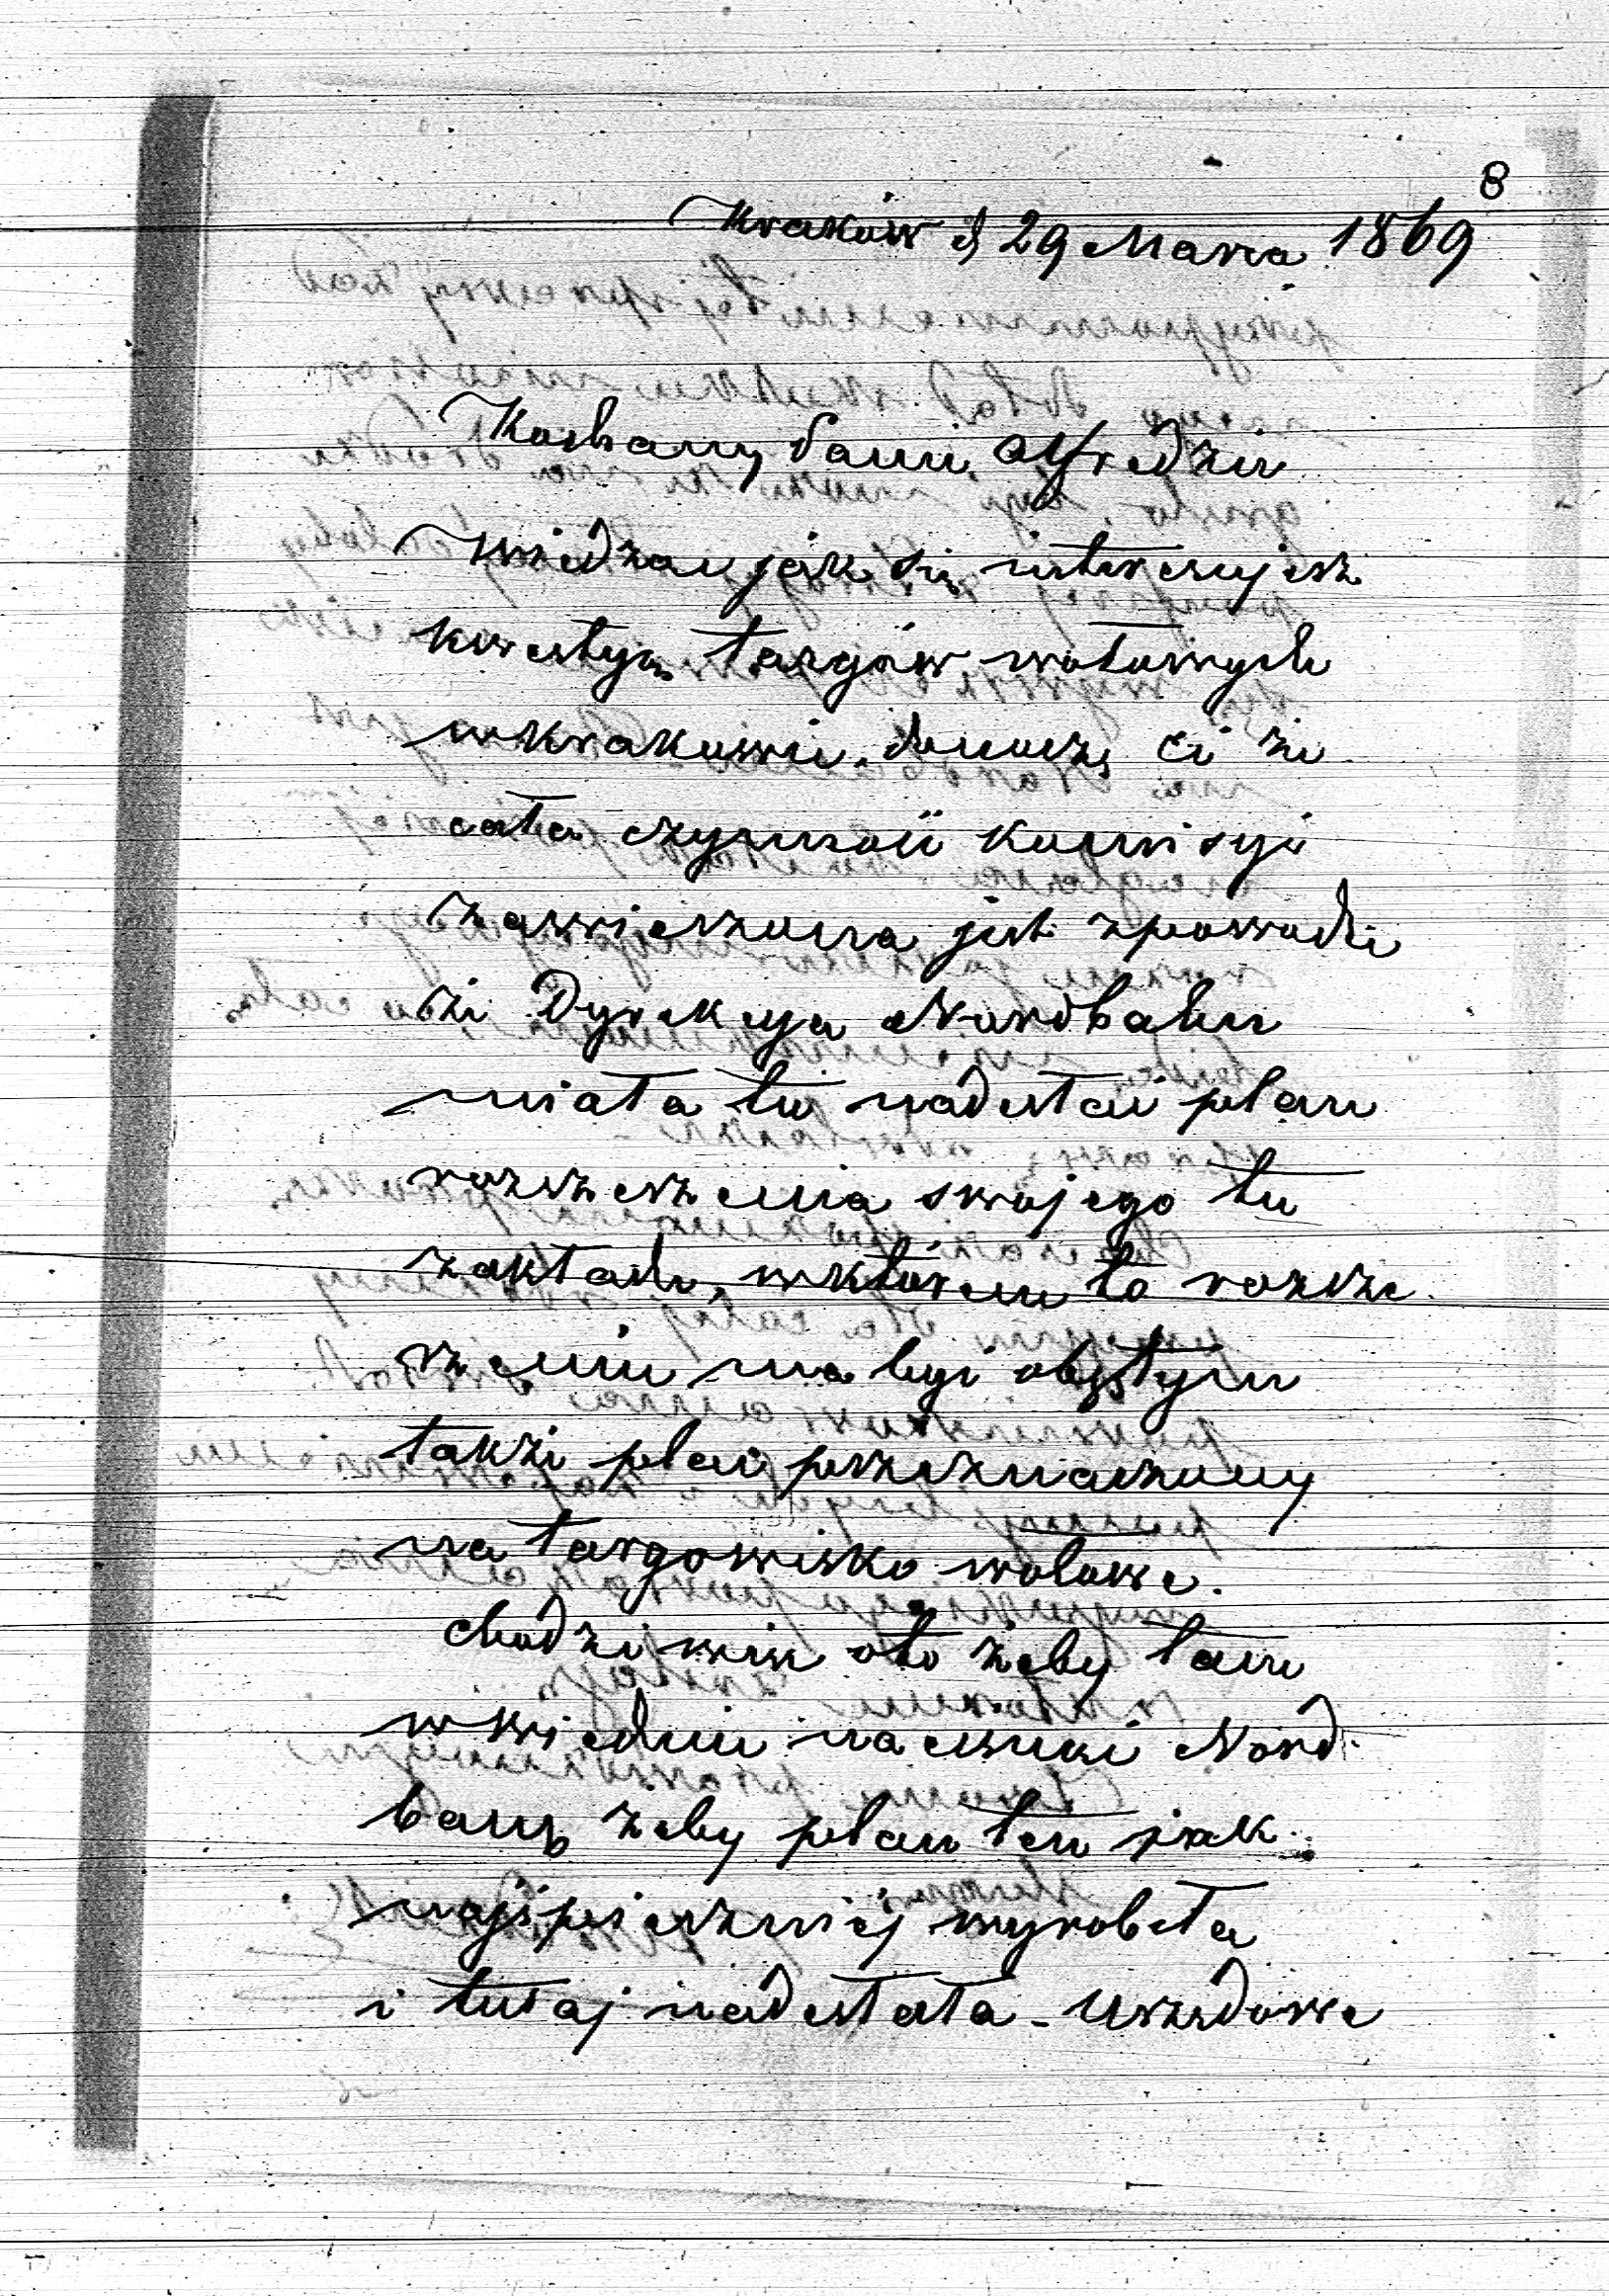 8
Kraków d 29 Marca 1869
Kochany Panie Alfredzie
Wiedząc jak się interesujesz
kwestyą targów wołowych
w Krakowie, donoszę Ci że
cała czynność Komisyi
zawieszona jest z powodu
że Dyrekcya Nordbahn
miała tu nadesłać plan
rozszerzenia swojego tu
zakładu, w którem to rozsze
rzeniu ma być objętym
także plac przeznaczony
na targowisko wołowe.
Chodzi więc oto żeby tam
w Wiedniu nacisnąć Nord
banę żeby plan ten jak
najśpieszniej wyrobiła
i tutaj nadesłała - Urzędowe